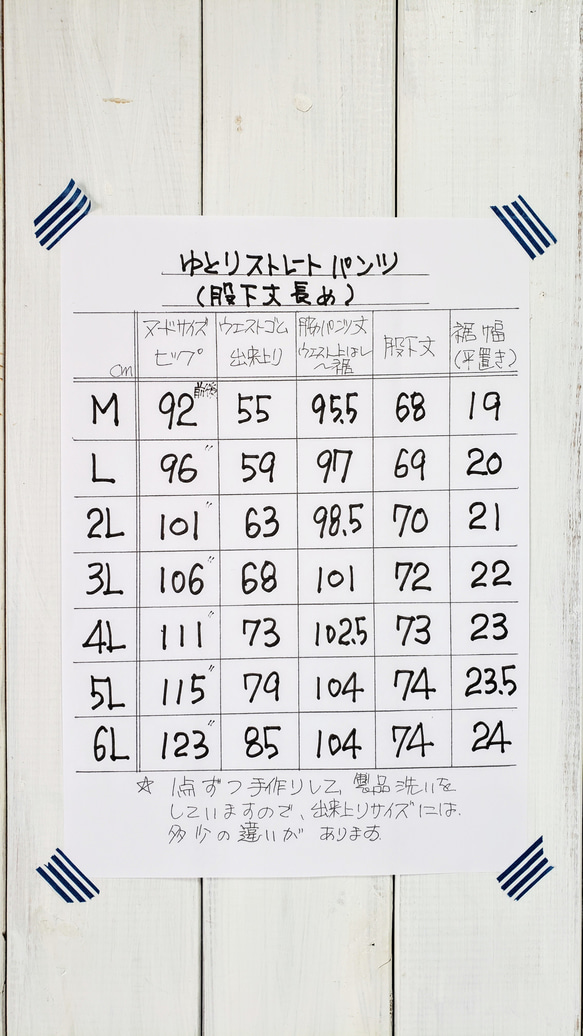 ゆとりストレートパンツ
(股下丈長め)
cm ヌードサイズ ヒップ ウエストゴム 出来上り 脇パンツ丈 ウエスト上はし〜裾 股下丈 裾幅 (平置き)
M 92前後 55 95.5 68 19
L 96〃 59 97 69 20
2L 101〃 63 98.5 70 21
3L 106〃 68 101 72 22
4L 111〃 73 102.5 73 23
5L 115〃 79 104 74 23.5
6L 123〃 85 104 74 24
☆ 1点ずつ手作りして、製品洗いを
していますので、出来上りサイズには、
多少の違いがあります。